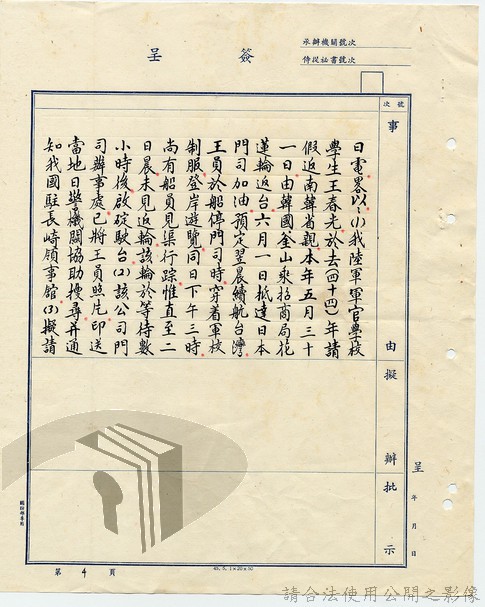 承辦機關號次
侍從祕書號次
簽呈
號次
事由擬辦批示
日電畧以：(1)我陸軍軍官學校
學生王春光於去(四十四)年請
假返南韓省親本年五月三十
一日由韓國釜山乘招商局花
蓮輪返台六月一日抵達日本
門司加油預定翌晨續航台灣
王員於船停門司時穿着軍校
制服登岸遊覽同日下午三時
尚有船員見渠行踪惟直至二
日晨未見返輪該輪於等待數
小時後啟碇駛台(2)該公司門
司辦事處已將王員照片印送
當地日警機關協助搜尋并通
知我國駐長崎領事館(3)擬請
呈
年月日
第4頁
請合法使用公開之影像